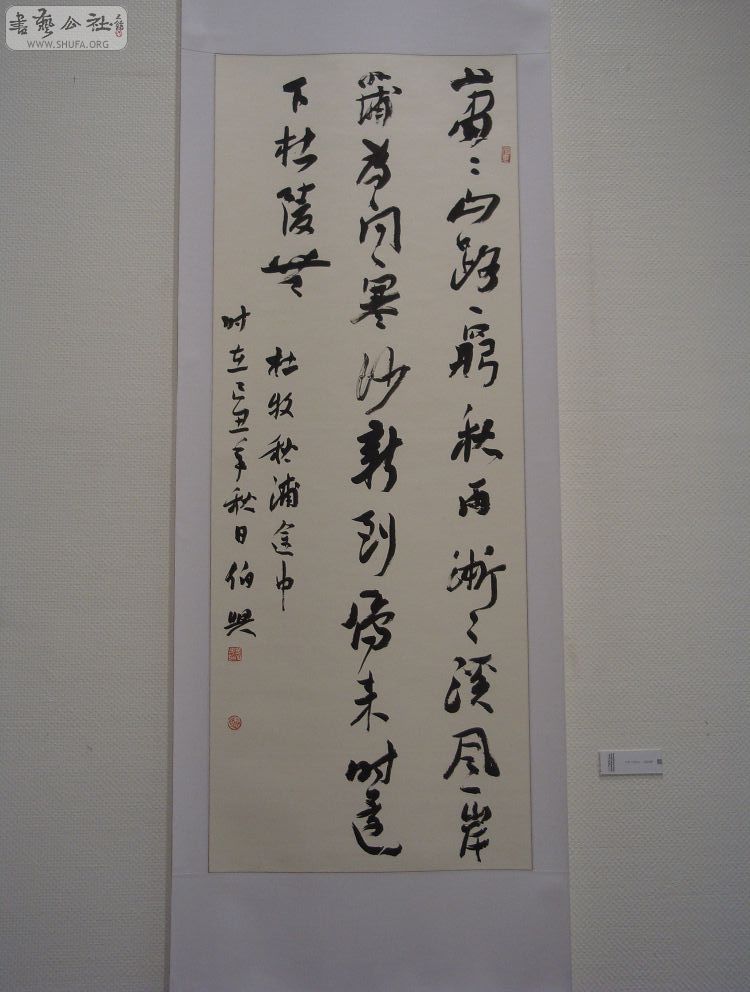 書藝公社
WWW.SHUFA.ORG
蕭〻山路窮秋雨淅〻溪风一岸
蒲为问寒沙新到鴈来时還
下杜陵無
杜牧秋浦途中
时在己丑年秋日伯興